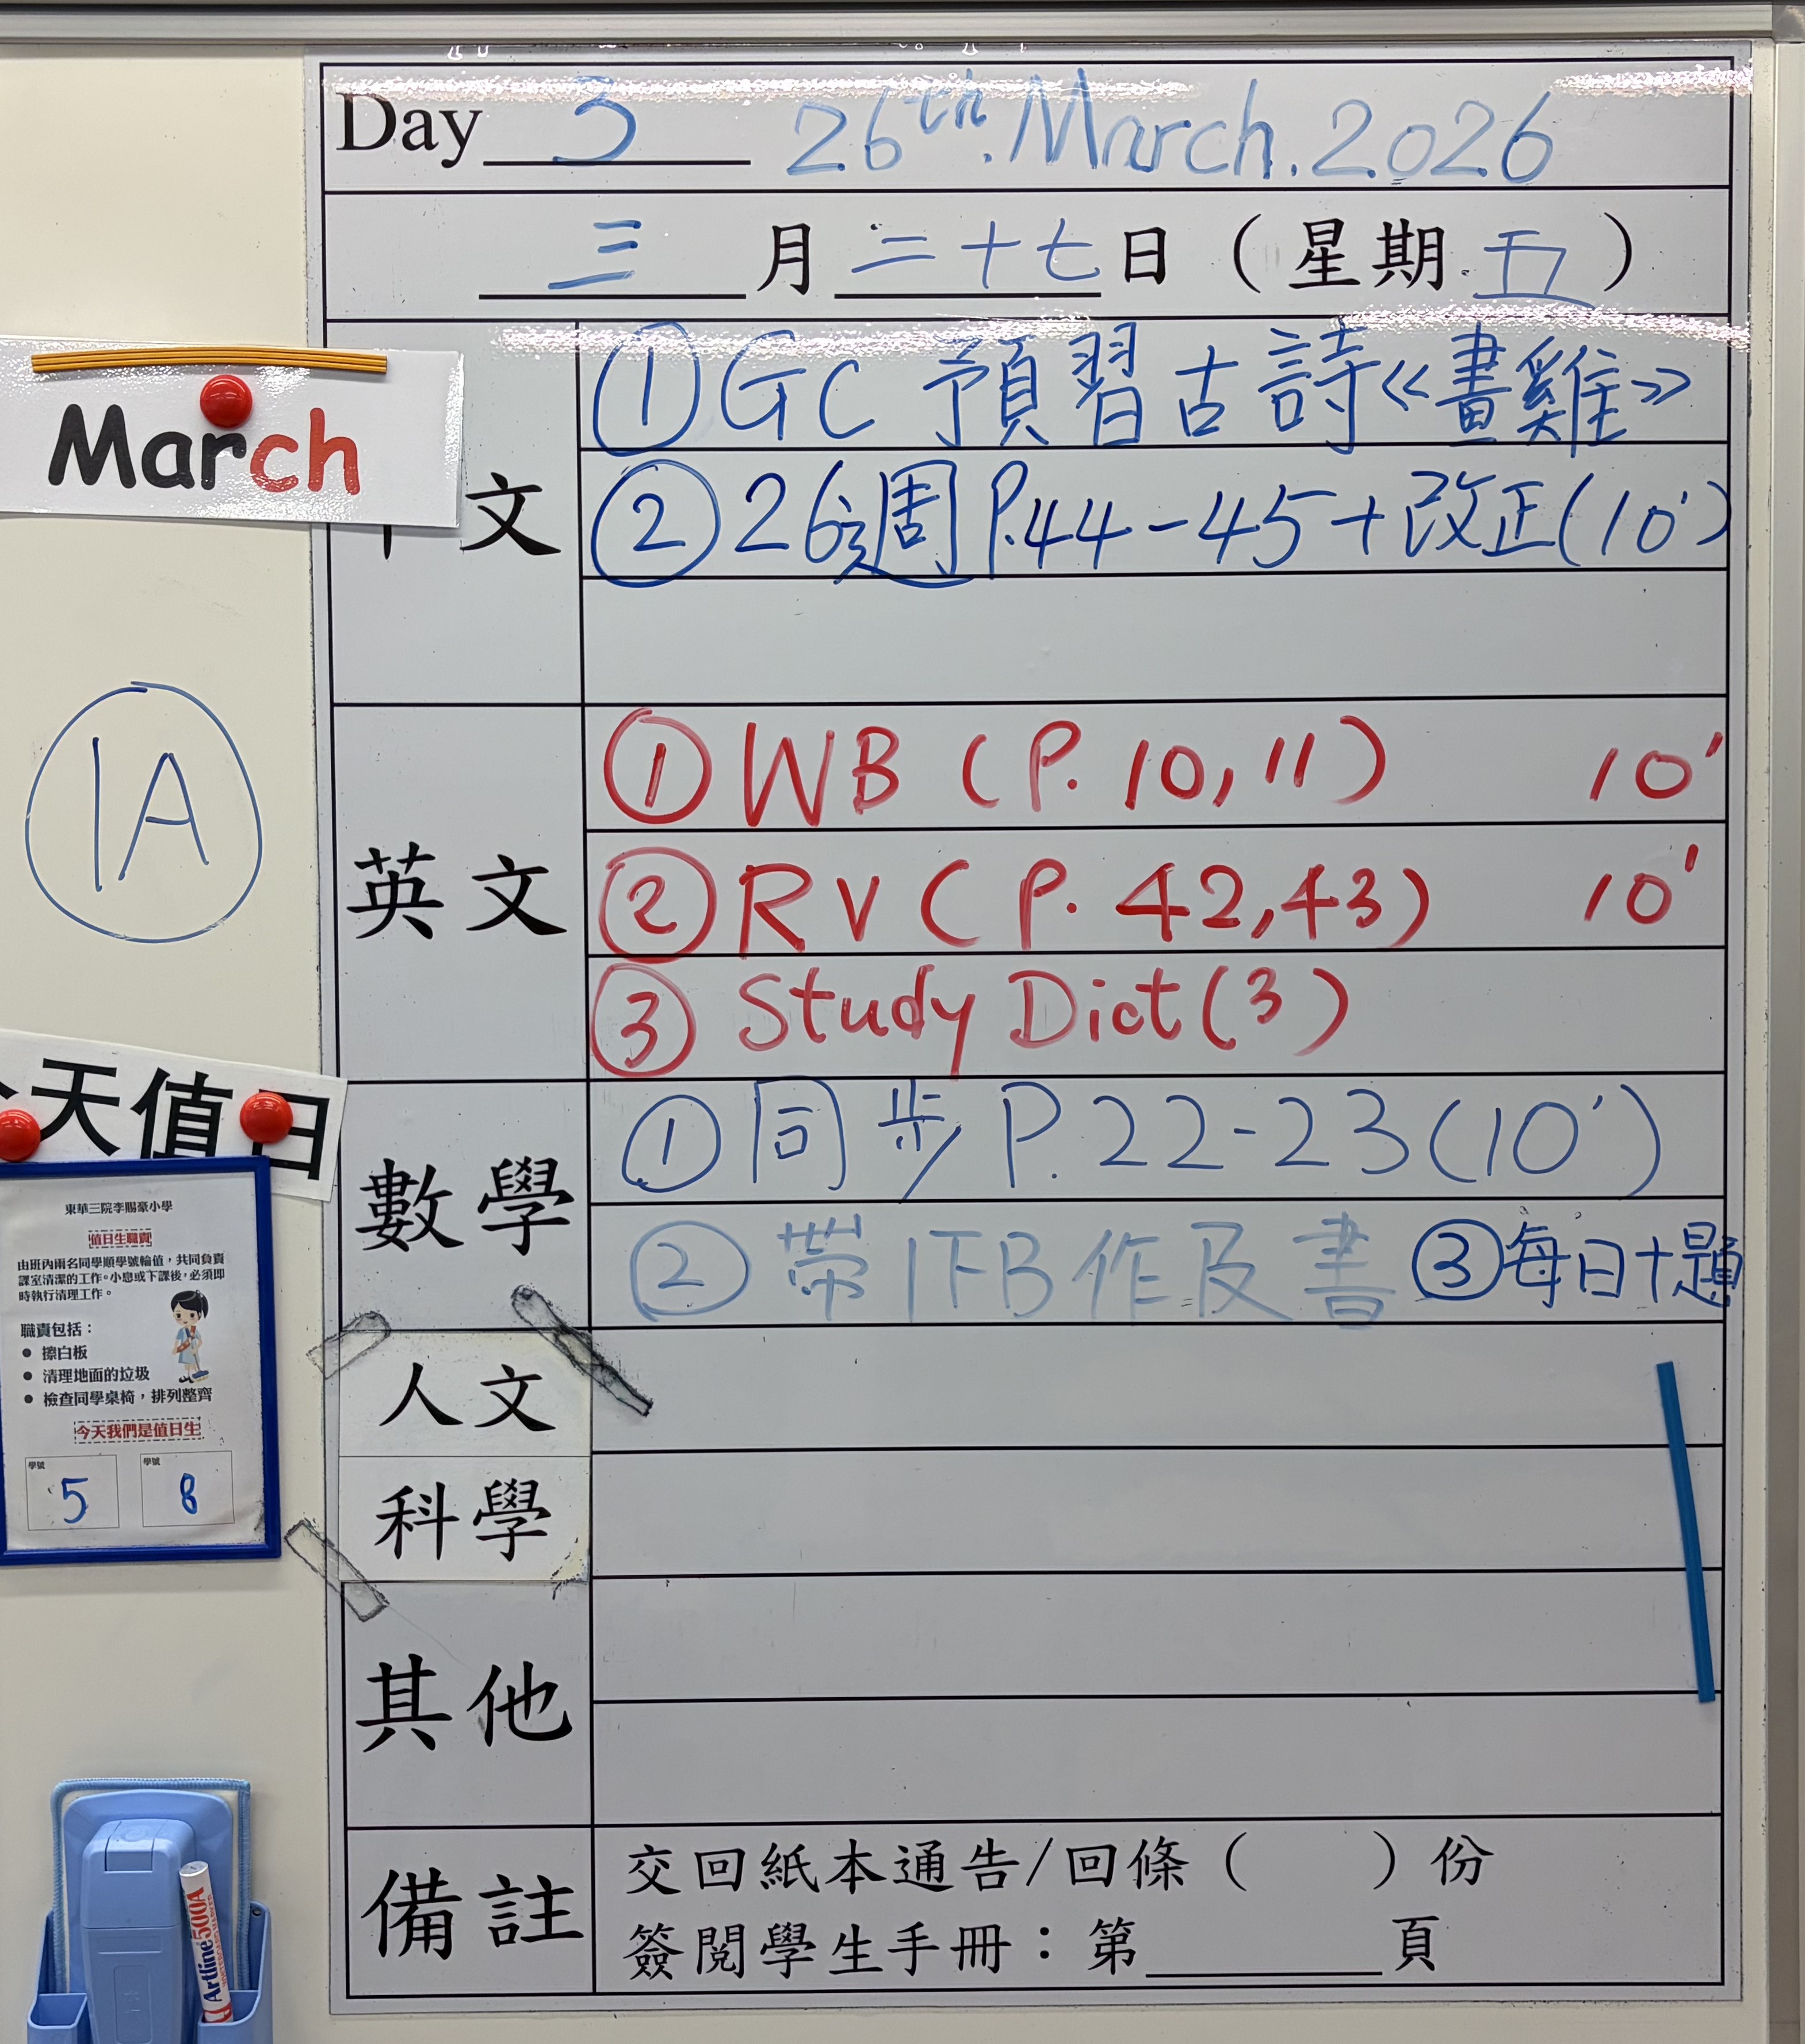 Day 3 26th. March. 2026
三 月 二十七 日 ( 星期 五 )
March
文
① GC 預習古詩《畫雞》
② 26週 P.44-45 + 改正 (10')
1A
英文
① WB (P. 10, 11) 10'
② RV (P. 42, 43) 10'
③ Study Dict (3)
天值日
數學
① 同步 P. 22-23 (10')
② 帶1FB作及書 ③ 每日十題
東華三院李賜豪小學
值日生職責
由班內兩名同學順學號輪值，共同負責
課室清潔的工作。小息或下課後，必須即
時執行清理工作。
職責包括：
● 擦白板
● 清理地面的垃圾
● 檢查同學桌椅，排列整齊
今天我們是值日生
學號 5 學號 8
人文
科學
其他
備註
交回紙本通告/回條 ( ) 份
簽閱學生手冊：第 頁
Artline 500A